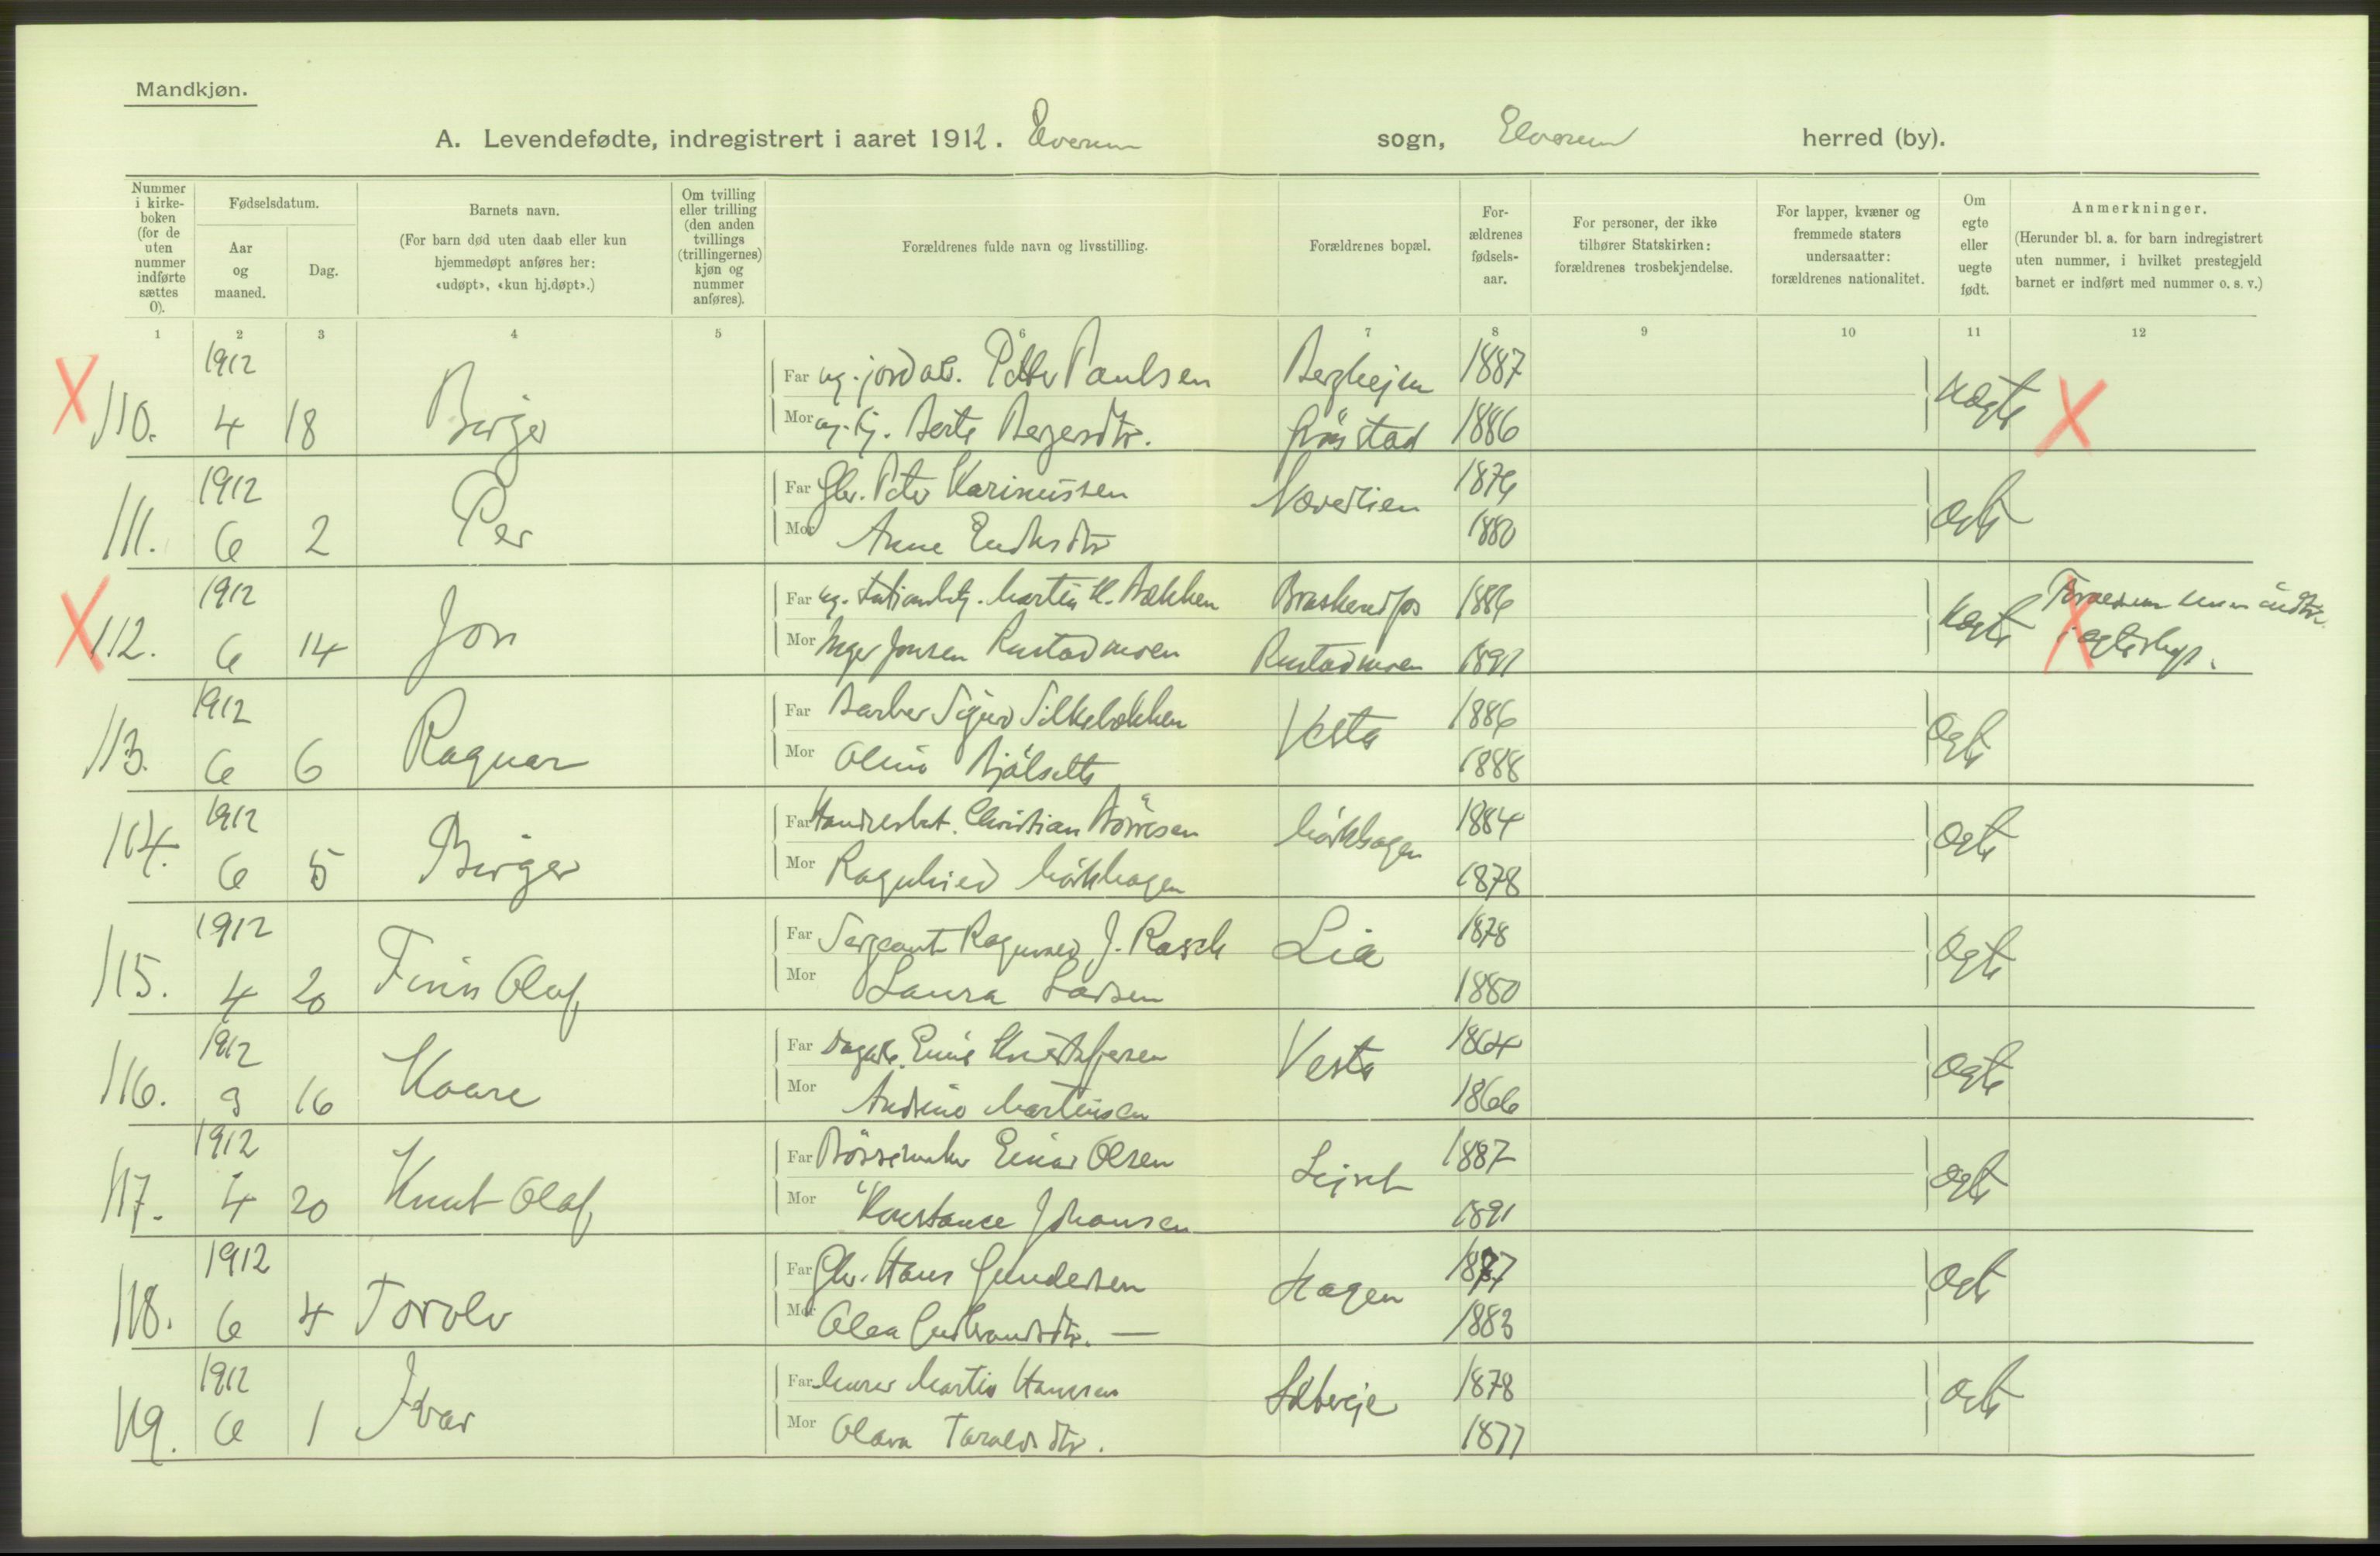 Mandkjøn.
A. Levendefødte, indregistrert i aaret 1912. Elverum sogn, Elverum herred (by).
Nummer i kirke-boken (for de uten nummer indførte sættes 0).
Fødselsdatum.
Aar og maaned.
Dag.
Barnets navn.
(For barn død uten daab eller kun hjemmedøpt anføres her: «udøpt», «kun hj.døpt».)
Om tvilling eller trilling (den anden tvillings (trillingernes) kjøn og nummer anføres).
Forældrenes fulde navn og livsstilling.
Forældrenes bopæl.
For-ældrenes fødsels-aar.
For personer, der ikke tilhører Statskirken: forældrenes trosbekjendelse.
For lapper, kvæner og fremmede staters undersaatter: forældrenes nationalitet.
Om egte eller uegte født.
Anmerkninger.
(Herunder bl. a. for barn indregistrert uten nummer, i hvilket prestegjeld barnet er indført med nummer o. s. v.)
1 2 3 4 5 6 7 8 9 10 11 12
1912 Far ug. jordarb. Petter Paulsen Berghejm 1887
110. 4 18 Birger Mor ug. Berte Bergersdtr. Grönstad 1886 uegte
1912 Far Gbr. Peter Karinussen Næverlien 1879
111. 6 2 Per Mor Anne Endresdtr 1880 egte
1912 Far ug. Martin K. Bækken Braskereidfos 1886
112. 6 14 Jon Mor Inger Jonsen Rustadmoen Rustadmoen 1891 uegte
1912 Far Barber Sigurd Silkebækken Vestad 1886
113. 6 6 Ragnar Mor Oline Bjölseth 1888 egte
1912 Far Christian Börresen Mörkhagen 1884
114. 6 5 Birger Mor Ragnhild Mörkhagen 1878 egte
1912 Far Sergeant Ragnvald J. Rasch Lia 1878
115. 4 20 Finn Olaf Mor Laura Larsen 1880 egte
1912 Far Dagarb. Kristoffersen Vestad 1864
116. 3 16 Kaare Mor Andrine Martinsen 1866 egte
1912 Far Börsemaker Einar Olsen Lejret 1887
117. 4 20 Knut Olaf Mor Konstance Johansen 1891 egte
1912 Far Gbr. Hans Gundersen Hagen 1877
118. 6 4 Torolv Mor Olea Gudbrandsdtr. — 1883 egte
1912 Far Murer Martin Hansen 1878
119. 6 1 Ivar Mor Olava Taraldsdtr. 1877 egte